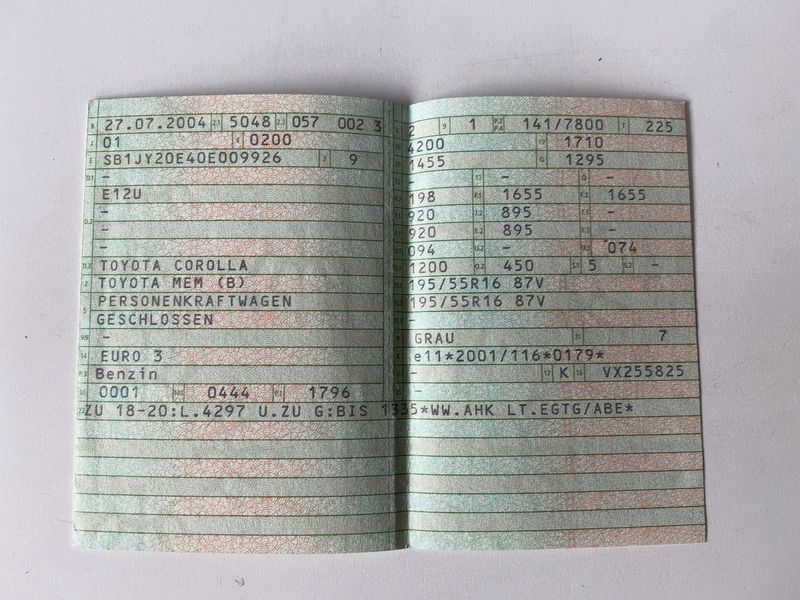 B 27.07.2004 2.1 5048 2.2 057 002 3
J 01 4 0200
E SB1JY20E40E009926 3 9
D.1 -
E12U
D.2 -
-
-
D.3 TOYOTA COROLLA
2 TOYOTA MEM (B)
5 PERSONENKRAFTWAGEN
GESCHLOSSEN
V.9 -
14 EURO 3
P.3 Benzin
10 0001 14.1 0444 P.1 1796
22 ZU 18-20:L.4297 U.ZU G:BIS 1335*WW.AHK LT.EGTG/ABE*
L 2 9 1 P.2 P.4 141/7800 T 225
4200 19 1710
1455 G 1295
- 13 - Q -
198 F.1 1655 F.2 1655
920 7.2 895 7.3 -
920 8.2 895 8.3 -
094 U.2 - U.3 074
1200 O.2 450 S.1 5 S.2 -
195/55R16 87V
195/55R16 87V
-
R GRAU 11 7
K e11*2001/116*0179*
- 17 K 16 VX255825
-